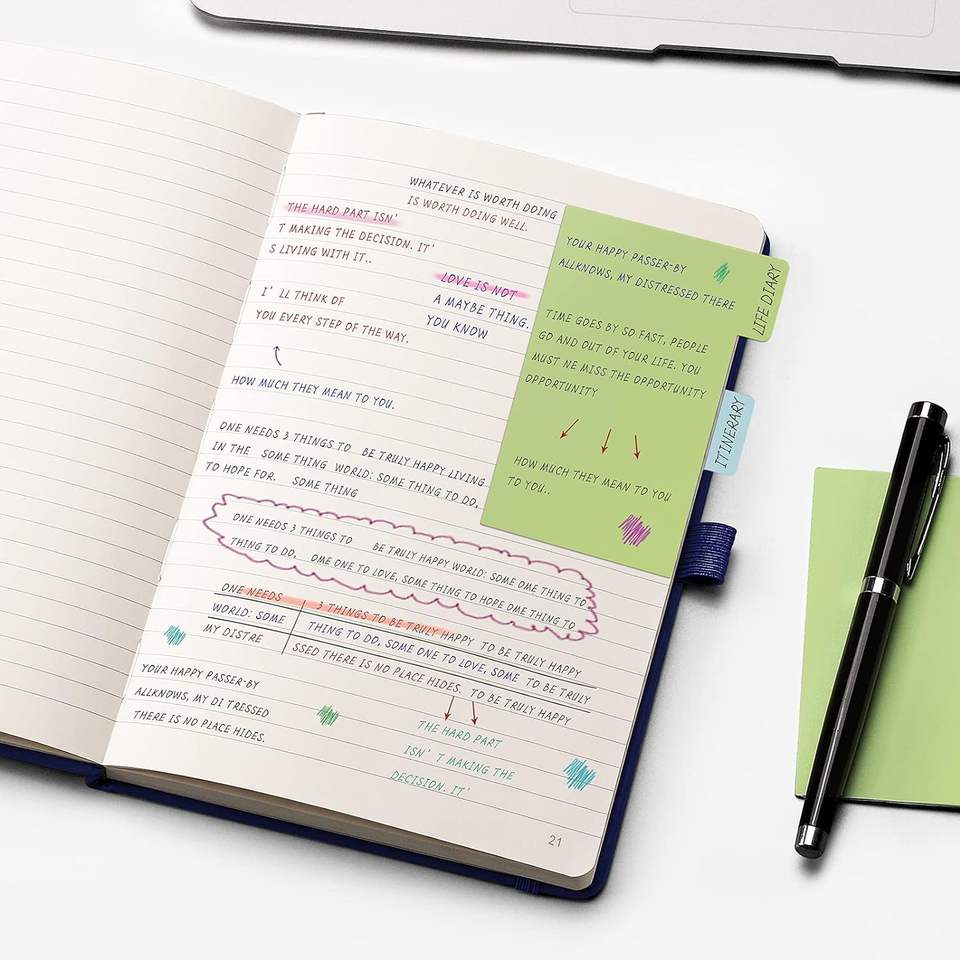 WHATEVER IS WORTH DOING
IS WORTH DOING WELL.
THE HARD PART ISN'
T MAKING THE DECISION. IT'
S LIVING WITH IT..
LOVE IS NOT
A MAYBE THING.
YOU KNOW
I' LL THINK OF
YOU EVERY STEP OF THE WAY.
HOW MUCH THEY MEAN TO YOU.
YOUR HAPPY PASSER-BY
ALLKNOWS, MY DISTRESSED THERE
TIME GOES BY SO FAST, PEOPLE
GO AND OUT OF YOUR LIFE. YOU
MUST NE MISS THE OPPORTUNITY
OPPORTUNITY
HOW MUCH THEY MEAN TO YOU
TO YOU..
LIFE DIARY
ITINERARY
ONE NEEDS 3 THINGS TO BE TRULY HAPPY LIVING
IN THE SOME THING WORLD: SOME THING TO DO,
TO HOPE FOR. SOME THING
ONE NEEDS 3 THINGS TO BE TRULY HAPPY WORLD: SOME OME THING TO
THING TO DO, OME ONE TO LOVE, SOME THING TO HOPE OME THING TO
ONE NEEDS 3 THINGS TO BE TRULY HAPPY TO BE TRULY HAPPY
WORLD: SOME THING TO DO, SOME ONE TO LOVE, SOME TO BE TRULY
MY DISTRE SSED THERE IS NO PLACE HIDES. TO BE TRULY HAPPY
YOUR HAPPY PASSER-BY
ALLKNOWS, MY DI TRESSED
THERE IS NO PLACE HIDES.
THE HARD PART
ISN' T MAKING THE
DECISION. IT'
21